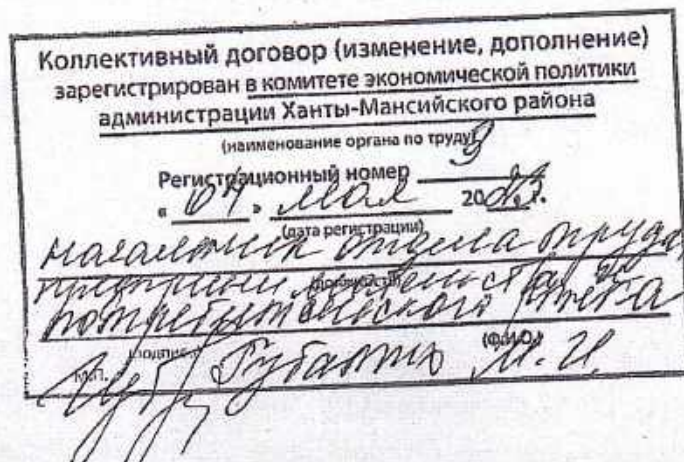 Коллективный договор (изменение, дополнение)
зарегистрирован в комитете экономической политики
администрации Ханты-Мансийского района
(наименование органа по труду)
Регистрационный номер 9
« 04 » мая 2023г.
(дата регистрации)
начальник отдела труда,
предпринимательства и
(должность)
потребительского рынка
(подпись) (Ф.И.О.)
М.П. М. И.